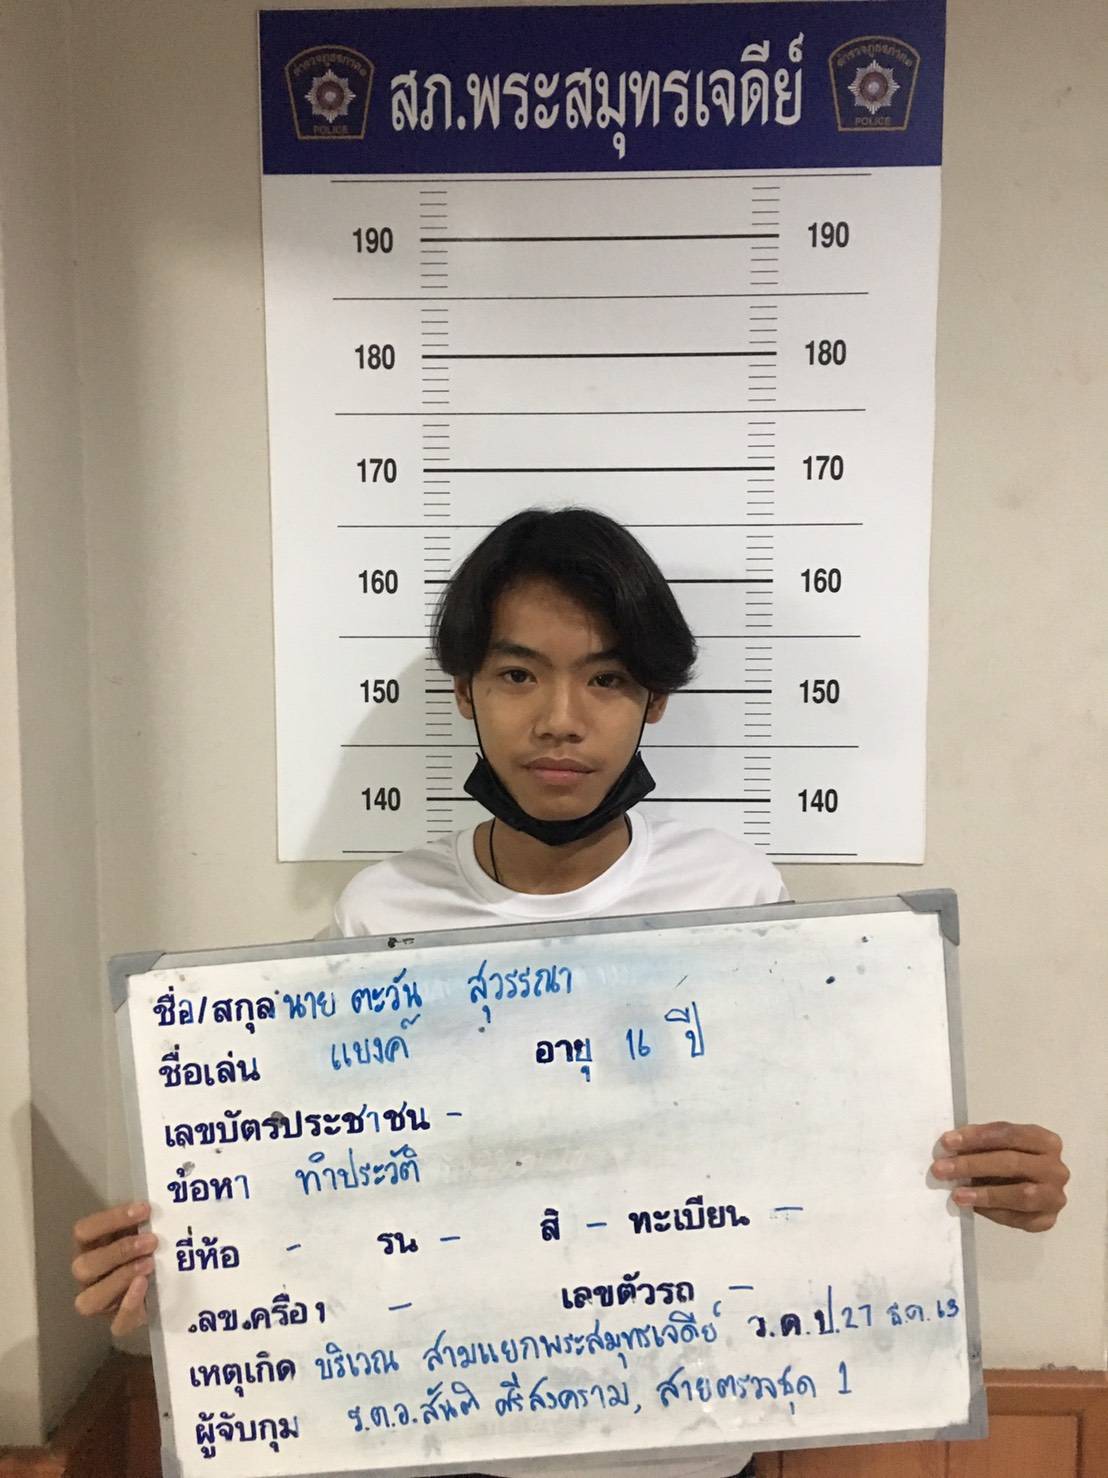 สภ.พระสมุทรเจดีย์
ตำรวจภูธรภาค๑ POLICE
ตำรวจภูธรภาค๑ POLICE
190 190
180 180
170 170
160 160
150 150
140 140
ชื่อ/สกุล นาย ตะวัน สุวรรณา
ชื่อเล่น แบงค์ อายุ 16 ปี
เลขบัตรประชาชน -
ข้อหา ทำประวัติ
ยี่ห้อ - รน - สี - ทะเบียน -
ลข.ครื่อง - เลขตัวรถ -
เหตุเกิด บริเวณ สามแยกพระสมุทรเจดีย์ ว.ด.ป. 27 ธ.ค. 63
ผู้จับกุม ร.ต.อ.สันติ ศรีสงคราม, สายตรวจชุด 1